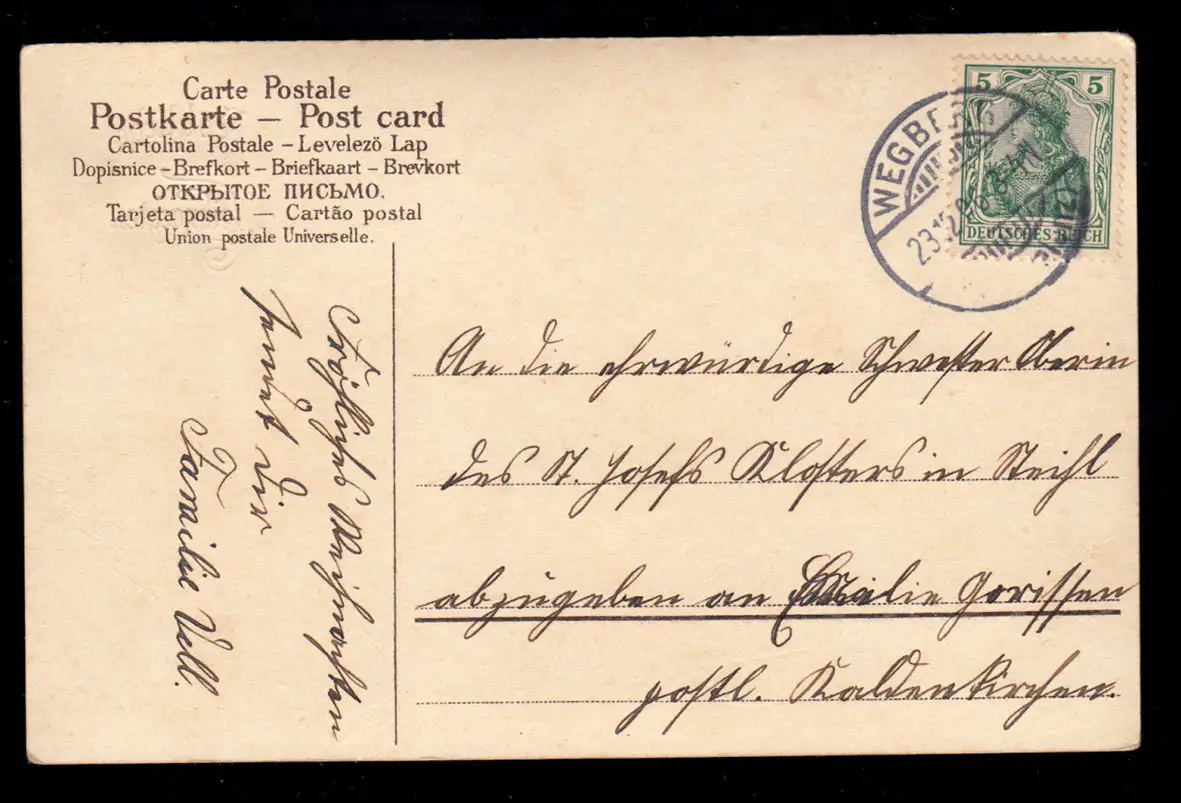 Carte Postale
Postkarte — Post card
Cartolina Postale – Levelező Lap
Dopisnice – Brefkort – Briefkaart – Brevkort
ОТКРЫТОЕ ПИСЬМО.
Tarjeta postal — Cartão postal
Union postale Universelle.
5 5
DEUTSCHES REICH
WEGBERG
23.12.
An die ehrwürdige Schwester Oberin
des St. Josefs Klosters in Steihl
abzugeben an Emilie Gorissen
postl. Kaldenkirchen.
Fröhliches Weihnachten
sendet dir
Familie Vell.